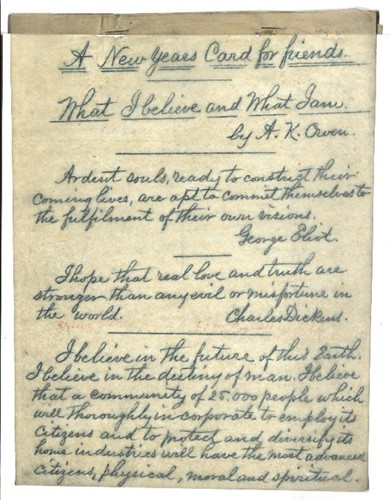 A New Years Card for friends.
What I believe and What I am.
by A. K. Owen.
Ardent souls, ready to constrict their
coming lives, are apt to commit themselves to
the fulfilment of their own visions.
George Eliot.
I hope that real love and truth are
stronger than any evil or misfortune in
the world. Charles Dickens.
I believe in the future of this Earth.
I believe in the destiny of man. I believe
that a community of 25.000 people which
will thoroughly in corporate to employ its
citizens and to protect and diversify its
home industries will have the most advanced
citizens, physical, moral and spiritual.